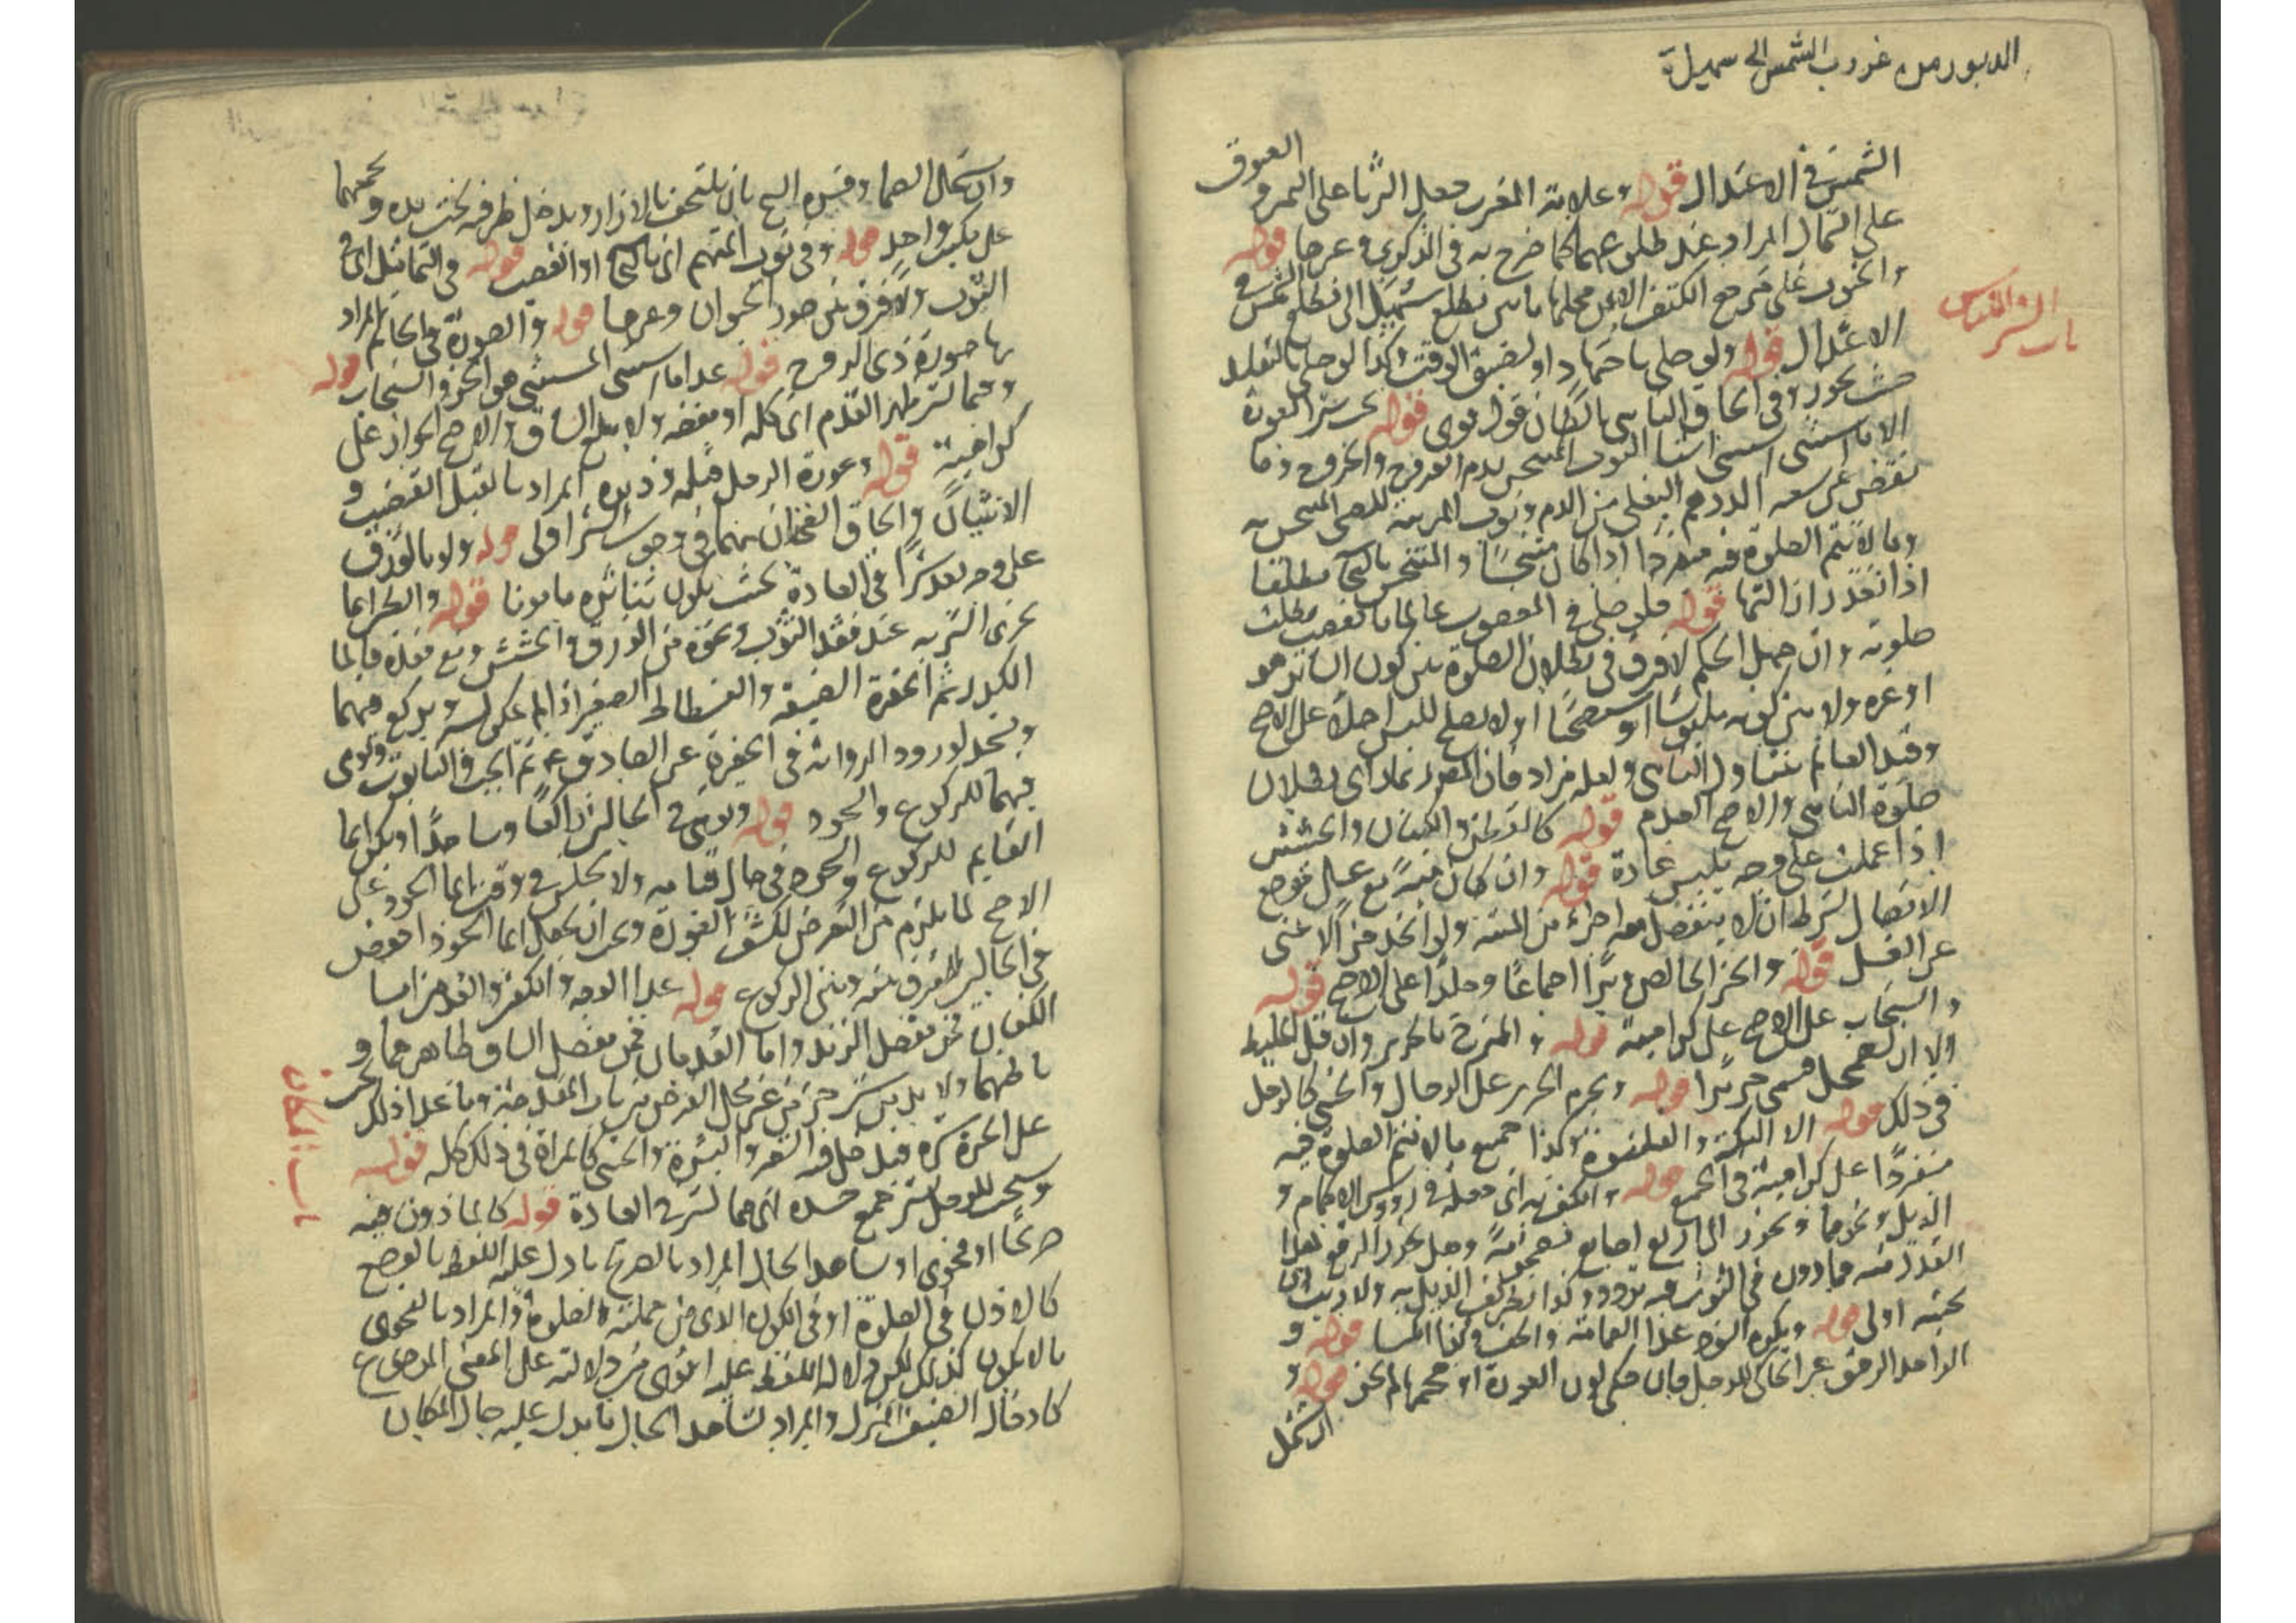 الدبور من غروب الشمس الى سهيل
الشمس في الاعتدال قوله وعلامة المغرب جعل الثريا على اليمين و العيوق
على الشمال المراد عند طلوعهما كما صرح به في الذكرى وغيرها قوله
والجنوب على مرجع الكتف الايمن محلها ما بين مطلع سهيل الى مطلع الشمس في
باب الستر اللباس
الاعتدال قوله ولو صلى باجتهاد او لضيق الوقت وكذا لو صلى بالتقليد
حيث يجوز وفي الحاق الناسي بالظان قول قوي قوله يجب ستر العورة
الا ما استثني استثنى الثوب المتنجس بدم القروح والجروح وما
نقص عن سعة الدرهم البغلي من الدم وثوب المربية للصبي المتنجس به
وما لا يتم الصلوة فيه منفردا اذا كان متنجسا والمتنجس بالنجاسة مطلقا
اذا تعذر ازالتها قوله فلو صلى في المغصوب عالما بالغصب بطلت
صلوته وان جهل الحكم لا فرق في بطلان الصلوة بين كون الساتر هو
او غيره ولا بين كونه ملبوسا او مستصحبا او لا يصلح للبس اصلا على الاصح
وقيد العالم يتناول الناسي ولعله مراد فان المصنف يرى بطلان
صلوة الناسي والاصح العدم قوله كالقطن والكتان والحشيش
اذا عملت على وجه يلبس عادة قوله وان كان ميتة مع غسل موضع
الاتصال بشرط ان لا ينفصل معه اجزاء من الميتة ولو اخذ جزا لا غنى
عن الغسل قوله والخز الخالص وبرا اجماعا وجلدا على الاصح قوله
والسنجاب على الاصح على كراهية قوله والممزج بالحرير وان قل الخليط
ولا ان يضمحل فيسمى حريرا قوله ويحرم الحرير على الرجال والخنثى كالرجل
في ذلك قوله الا التكة والقلنسوة وكذا جميع ما لا يتم الصلوة فيه
منفردا على كراهية في الجميع قوله والكف به اى جعله في رووس الاكمام و
الذيل ونحوها ويجوز الى اربع اصابع مضمومة وهل يجوز الرقع بهذا
القدر منه فما دون في الثوب فيه تردد وكذا تطريف الذيل به ولا ريب ان
تجنبه اولى قوله ويكره السود عدا العمامة والخف وكذا الكسا قوله و
الواحد الرقيق غير الحاكي للرجل فان حكى لون العورة او حجمها لم يجز قوله و
اشتمل
واشتمال الصما وفسره الشيخ بان يلتحف بالازار ويدخل طرفيه تحت يده ويجمعهما
على منكب واحد قوله وفي ثوب المتهم اى بالنجاسة او الغصب قوله في التماثيل اى في
الثوب ولا فرق بين صور الحيوان وغيرها قوله والصورة في الخاتم المراد
بها صورة ذى الروح قوله عدا ما استثني المستثنى هو الخز والسنجاب قوله
وفيما يستر ظهر القدم اى كله او بعضه ولا يبلغ الساق والاصح الجواز على
كراهية قوله وعورة الرجل قبله ودبره المراد بالقبل القضيب و
الانثيان والحاق الفخذان بهما في وجوب الستر اولى قوله ولو بالورق
على وجه يعد سترا في العادة بحيث يكون تناثره مامونا قوله والطين انما
يجزى الستر به عند فقد الثوب ونحوه من الورق والحشيش ومع فقده فالماء
الكدر ثم الحفرة الضيقة والفسطاط الصغير اذا لم يمكن لبسه ويركع فيهما
ويسجد لورود الرواية في الحفيرة عن الصادق ع ثم الحب والتابوت ويومى
فيهما للركوع والسجود قوله ويومى في الحالين راكعا وساجدا ويكون ايما
القايم للركوع والسجود في حال قيامه ولا يجلس في وقت ايما السجود على
الاصح لما يلزم من التعرض لكشف العورة ويجب ان يجعل ايما السجود اخفض
في الحالين للفرق بينه وبين الركوع قوله عدا الوجه والكفين والقدمين اما
الكفان فمن مفصل الزند واما القدمان فمن مفصل الساق ظاهرهما و
باطنهما ولا بد من ستر جزء من غير محل الفرض من باب المقدمة وما عدا ذلك يجب
على الحرة ستره فيدخل فيه الشعر والبشرة والخنثى كالمراة في ذلك كله قوله
باب المكان
ويستحب للرجل ستر جميع جسده اى مما يستر في العادة قوله كالماذون فيه
صريحا او فحوى او شاهد الحال المراد بالصريح ما دل عليه اللفظ بالوضع
كالاذن في الصلوة او في الكون الذى من جملته الصلوة والمراد بالفحوى
ما لا يكون كذلك لكن دلالة اللفظ عليه اقوى من دلالته على المعنى الموضوع
كادخال الضيف المنزل والمراد بشاهد الحال ما يدل عليه حال المكان